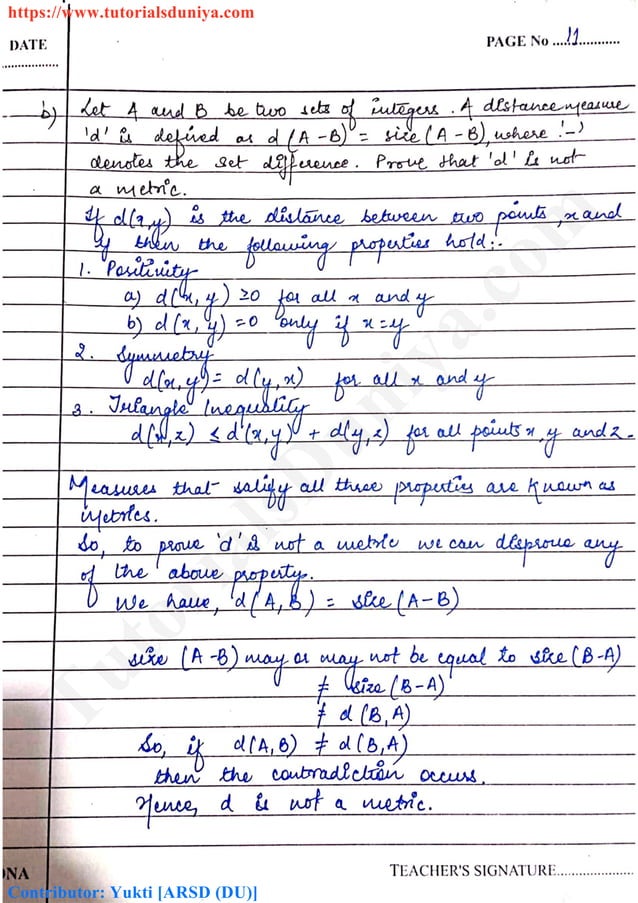 https://www.tutorialsduniya.com
DATE
PAGE No ....11............
b) Let A and B be two sets of integers. A distance measure
'd' is defined as d(A-B) = size(A-B), where '-'
denotes the set difference. Prove that 'd' is not
a metric.
If d(x,y) is the distance between two points, x and
y then the following properties hold:-
1. Positivity
a) d(x,y) ≥0 for all x and y
b) d(x,y) =0 only if x=y
2. Symmetry
d(x,y) = d(y,x) for all x and y
3. Triangle Inequality
d(x,z) ≤ d(x,y) + d(y,z) for all points x, y and z.
Measures that satify all three properties are known as
metrics.
So, to prove 'd' is not a metric we can disprove any
of the above property.
We have, d(A,B) = size(A-B)
size (A-B) may or may not be equal to size(B-A)
≠ size(B-A)
≠ d(B,A)
So, if d(A,B) ≠ d(B,A)
then the contradiction occurs.
Hence, d is not a metric.
ONA
TEACHER'S SIGNATURE...................
Contributor: Yukti [ARSD (DU)]
TutorialsDuniya.com